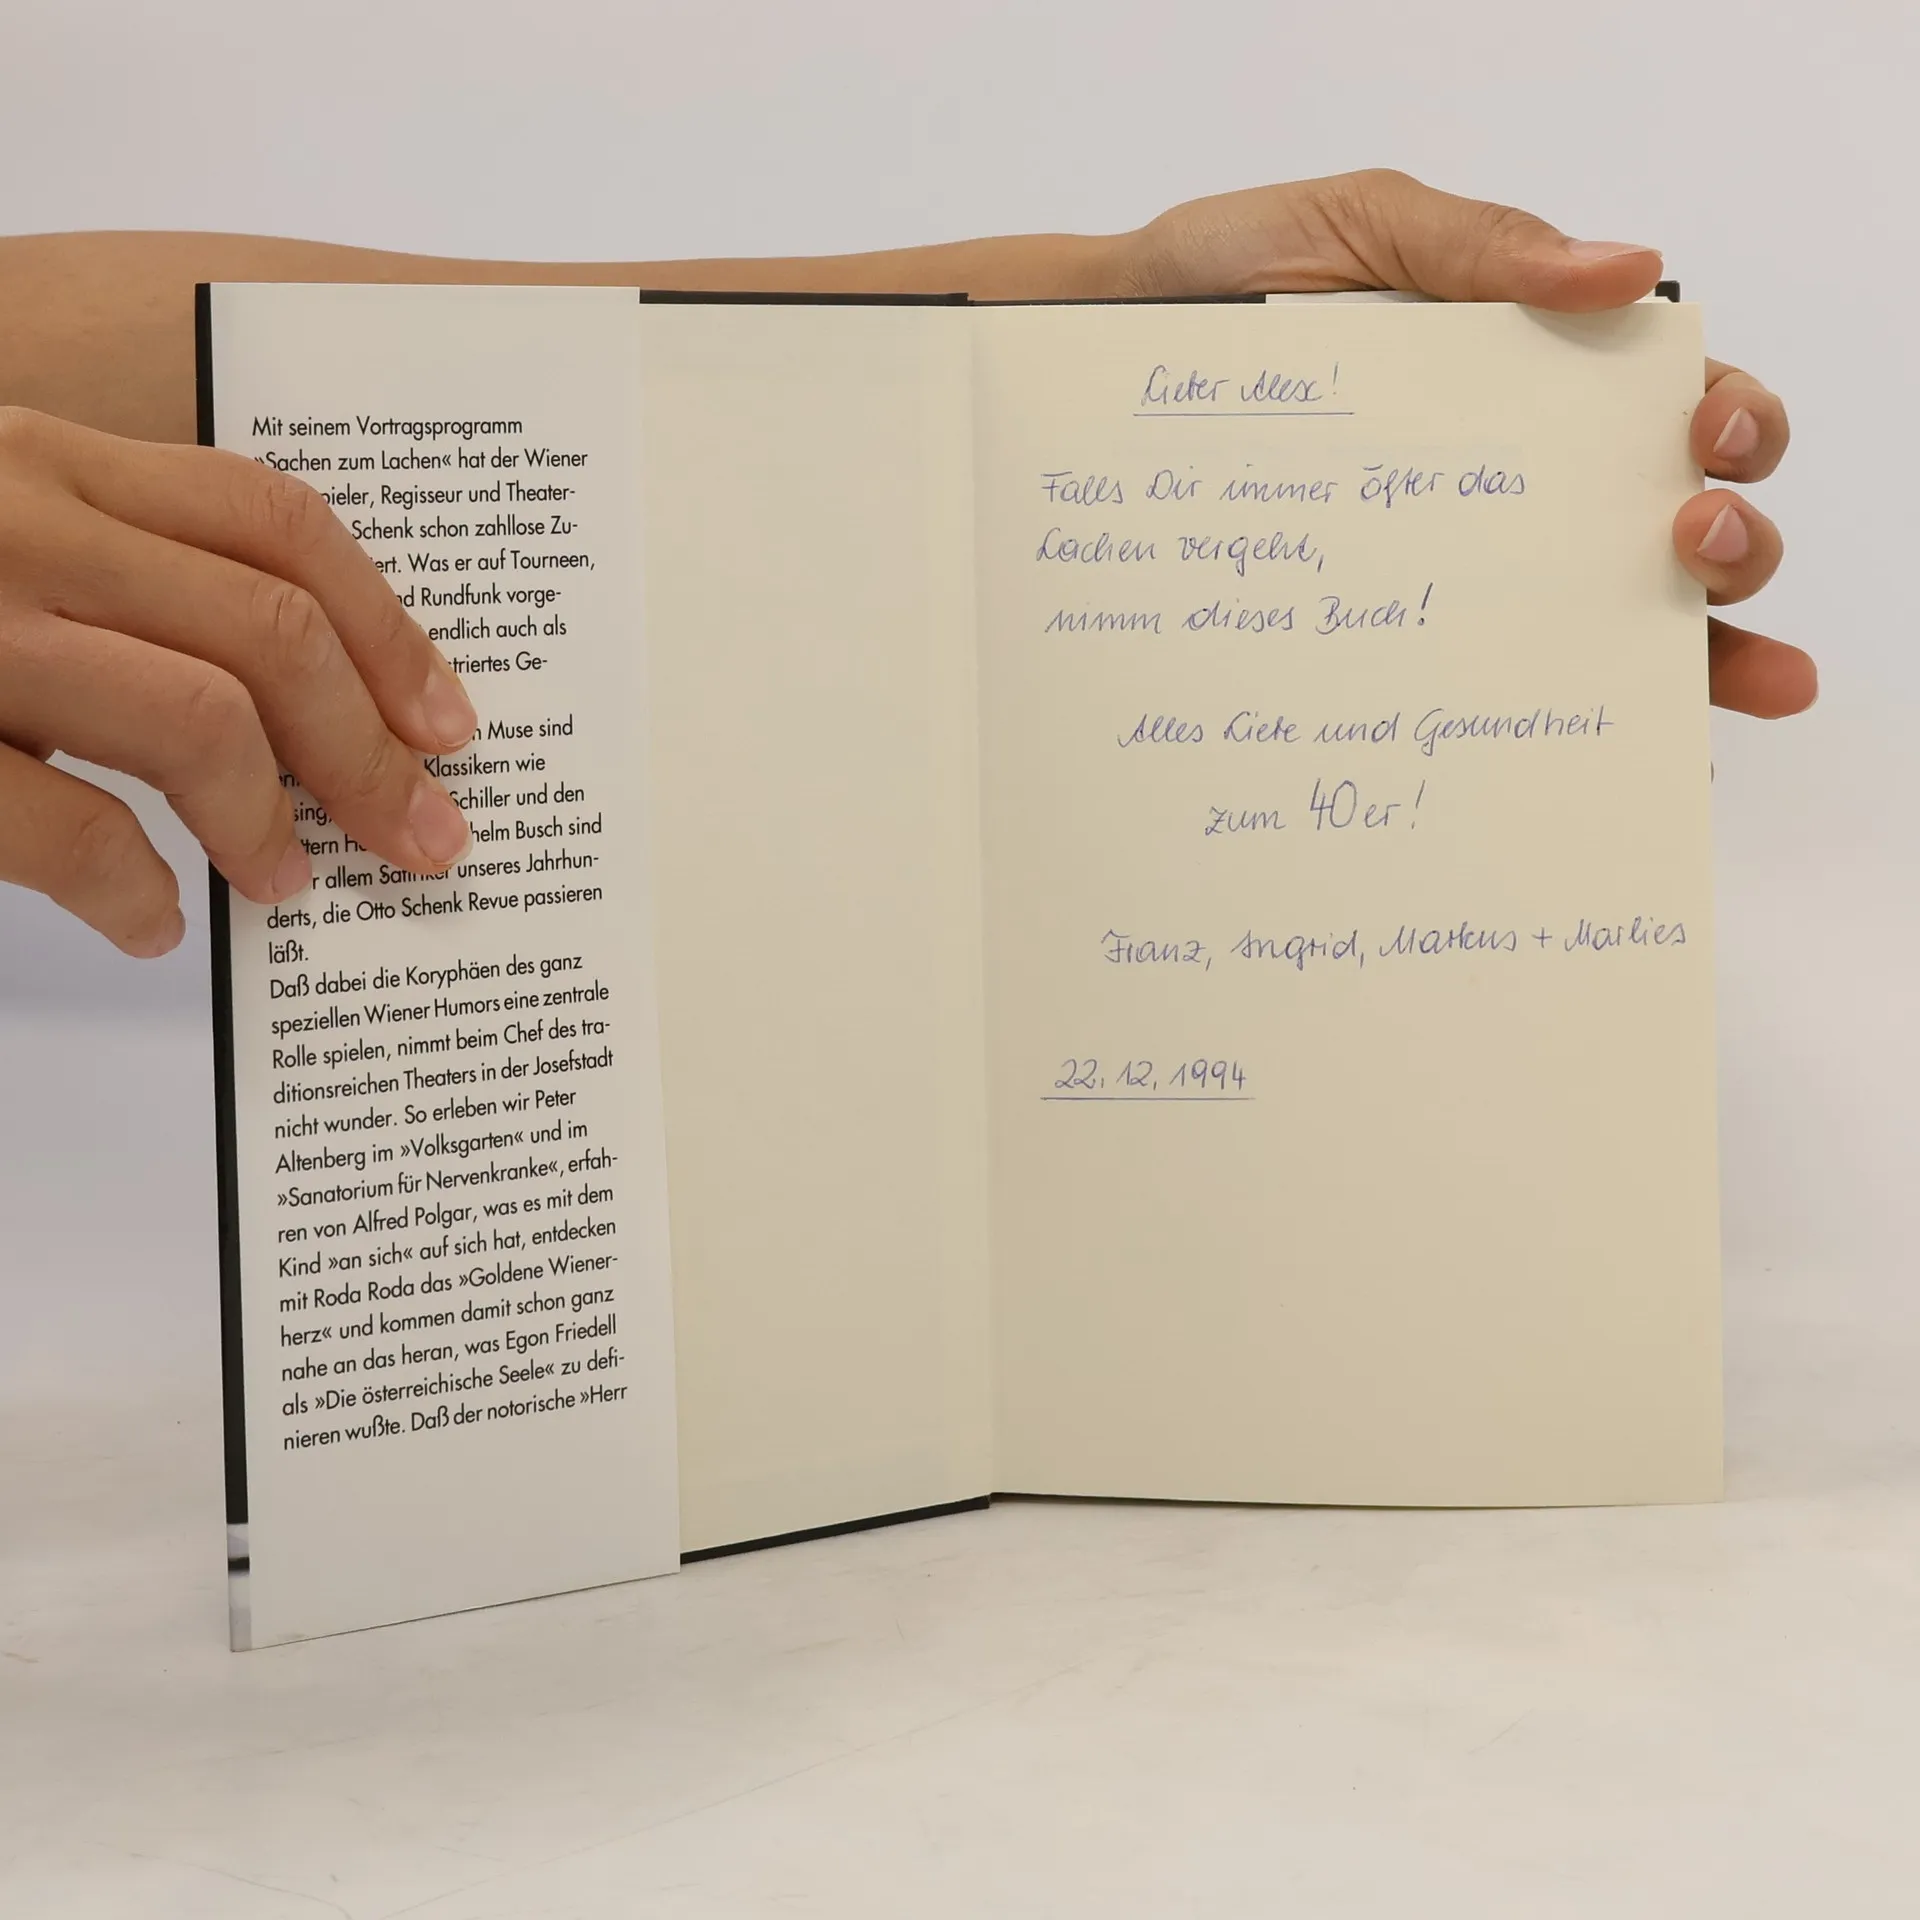 Mit seinem Vortragsprogramm
»Sachen zum Lachen« hat der Wiener
pieler, Regisseur und Theater-
Schenk schon zahllose Zu-
ert. Was er auf Tourneen,
nd Rundfunk vorge-
endlich auch als
triertes Ge-
n Muse sind
Klassikern wie
sing, Schiller und den
ttern helm Busch sind
r allem Satiriker unseres Jahrhun-
derts, die Otto Schenk Revue passieren
läßt.
Daß dabei die Koryphäen des ganz
speziellen Wiener Humors eine zentrale
Rolle spielen, nimmt beim Chef des tra-
ditionsreichen Theaters in der Josefstadt
nicht wunder. So erleben wir Peter
Altenberg im »Volksgarten« und im
»Sanatorium für Nervenkranke«, erfah-
ren von Alfred Polgar, was es mit dem
Kind »an sich« auf sich hat, entdecken
mit Roda Roda das »Goldene Wiener-
herz« und kommen damit schon ganz
nahe an das heran, was Egon Friedell
als »Die österreichische Seele« zu defi-
nieren wußte. Daß der notorische »Herr
Lieber Alex!
Falls Dir immer öfter das
Lachen vergeht,
nimm dieses Buch!
Alles Liebe und Gesundheit
zum 40er!
Franz, Ingrid, Markus + Marlies
22.12.1994